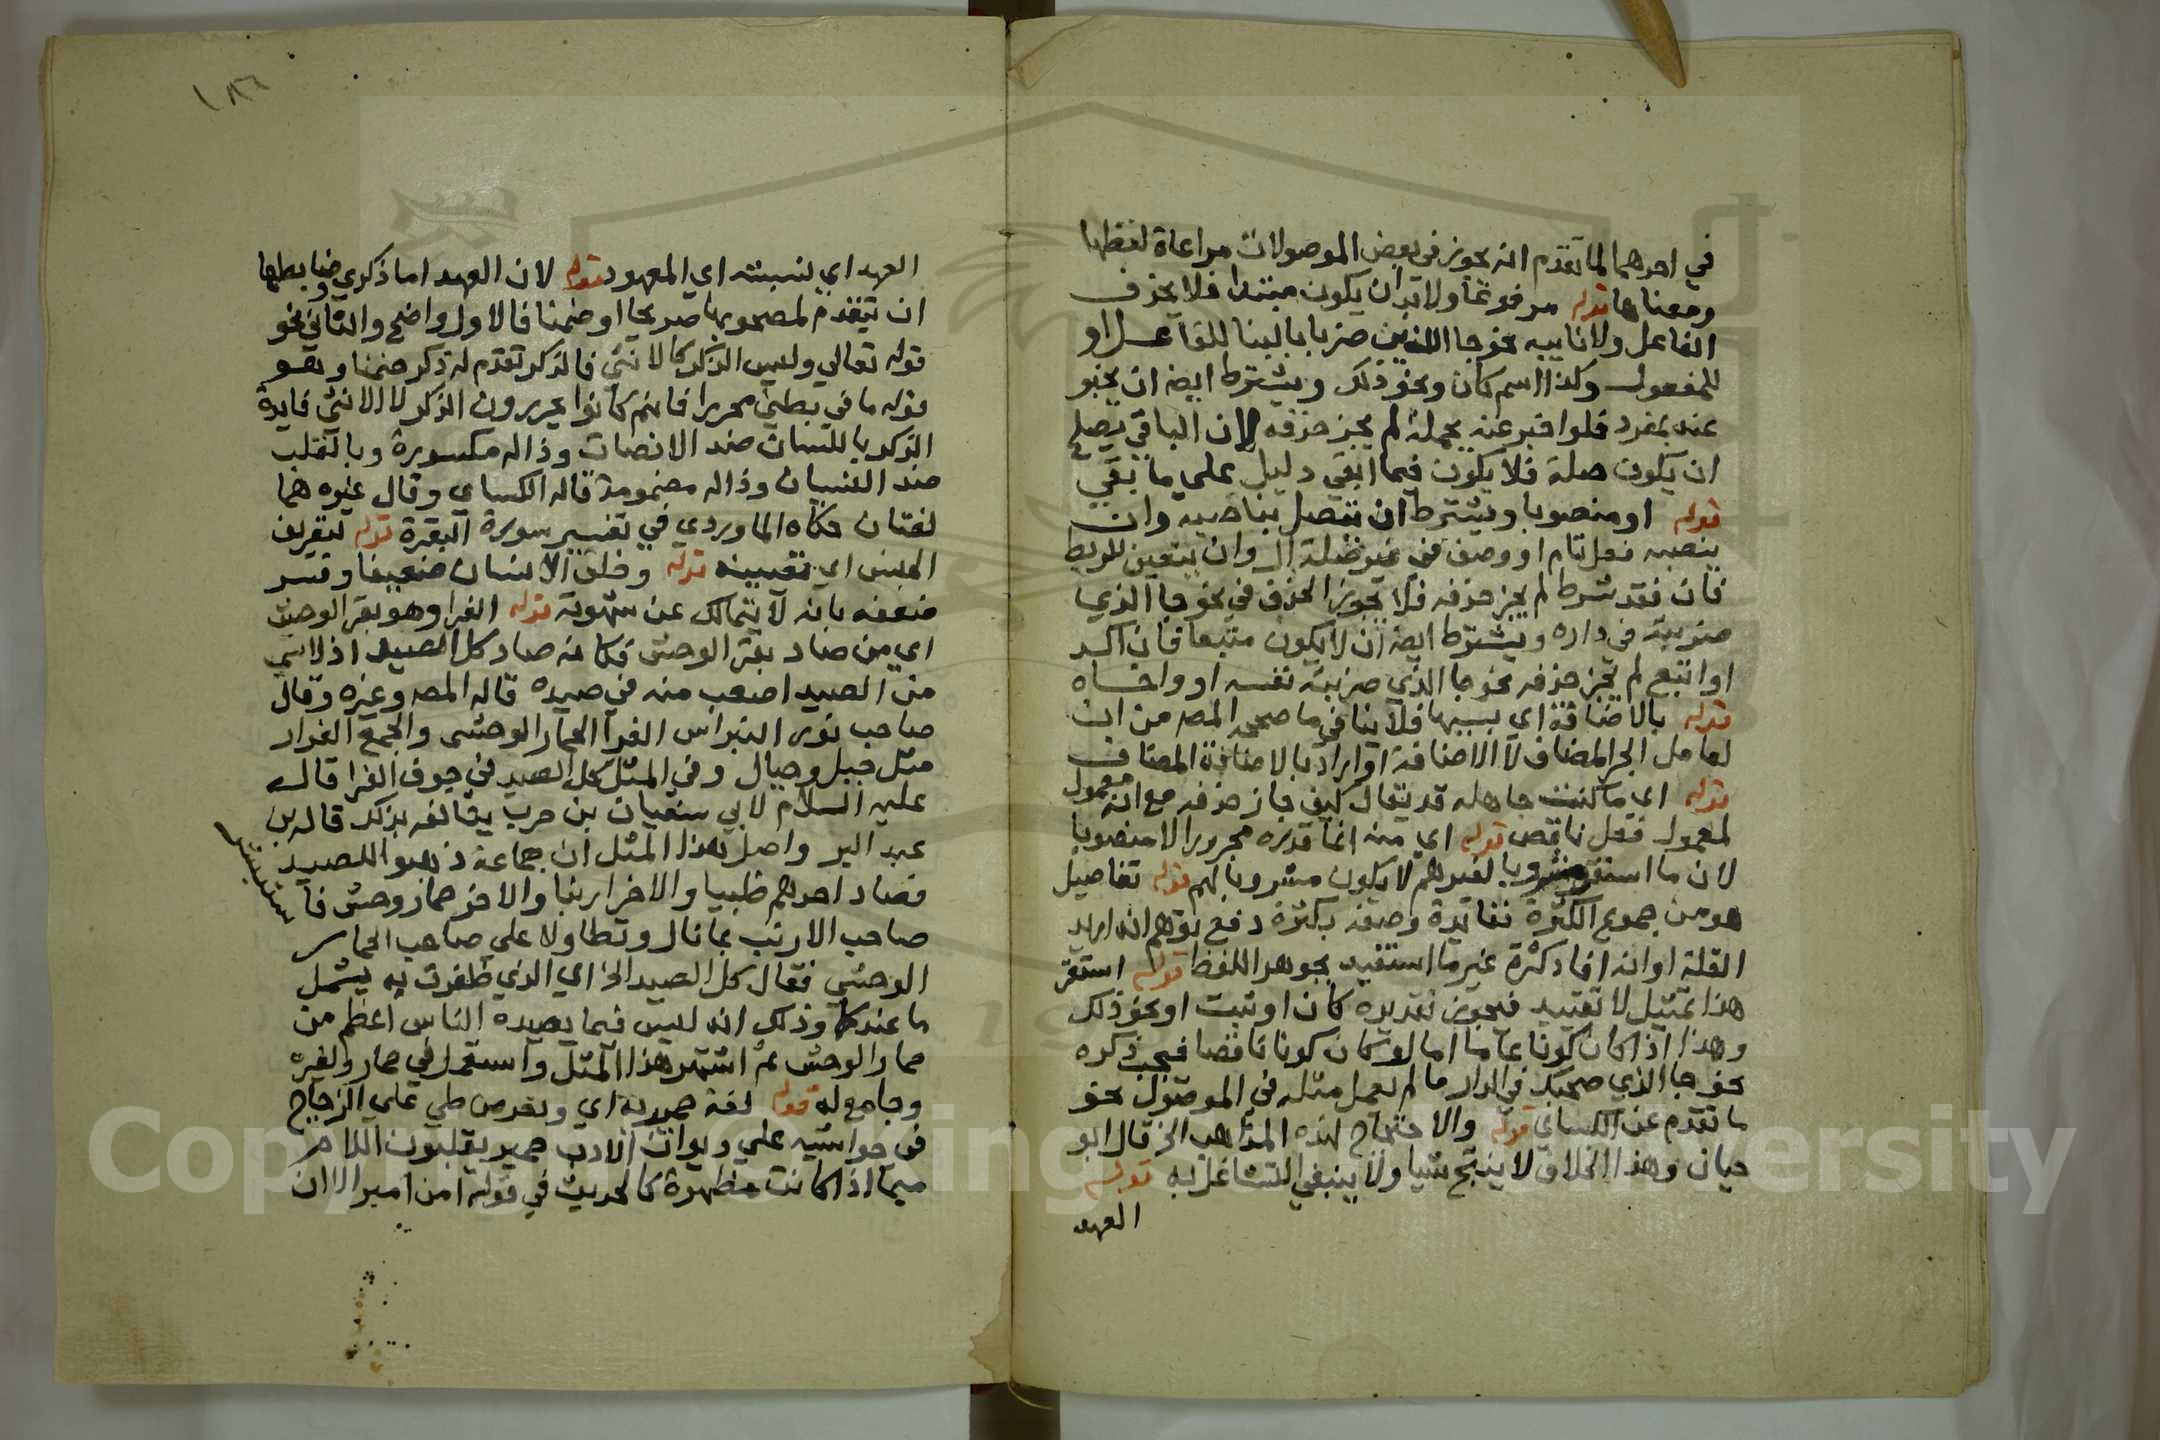 في احدهما لما تقدم انه يجوز في بعض الموصولات مراعاة لفظها
ومعناها قوله مرفوعا ولا بد ان يكون مبتدا فلا يحذف
الفاعل ولا نايبه نحو جا اللذين ضربا بالبنا للفاعل او
للمفعول وكذا اسم كان ونحو ذلك ويشترط ايضا ان يخبر
عنه بمفرد فلو اخبر عنه بجملة لم يجز حذفه لان الباقي يصلح
ان يكون صلة فلا يكون فيما ابقي دليل علي ما بقي
قوله او منصوبا ويشترط ان تتصل بناصبه وان
ينصبه فعل تام او وصف في غير صلة ال وان يتعين للربط
فان فقد شرط لم يجز حذفه فلا يجوز الحذف في نحو جا الذي
ضربته في داره ويشترط ايضا ان لا يكون متبعا فان اكد
او اتبع لم يجز حذفه نحو جا الذي ضربته نفسه او واخاه
قوله بالاضافة اي بسببها فلا ينافي ما صححه المصه من ان
لعامل الجر المضاف لا الاضافة او اراد بالاضافة المضاف
قوله اي ما كنت جاهله قد يقال كيف جاز حذفه مع انه معمول
لمعمول فعل ناقص قوله اي منه انما قدره مجرورا لا منصوبا
لان ما استقر مشروبا لغيرهم لا يكون مشروبا لهم قوله تفاصيل
هو من جموع الكثرة ففائدة وصفه بكثرة دفع توهم انه اريد
القلة او انه افاد كثرة غير ما استفيد بجوهر اللفظ قوله استقر
هذا تمثيل لا تقييد فيجوز تقديره كان او ثبت او نحو ذلك
وهذا اذا كان كونا عاما اما لو كان كونا ناقصا فيجب ذكره
نحو جا الذي ضحك في الدار ما لم يعمل مثله في الموصول نحو
ما تقدم عن الكساي قوله والاحتجاج لهذه المذاهب الخ قال ابو
حيان وهذا الخلاف لا ينتج شيا ولا ينبغي التشاغل به قوله
العهد
١٨٦
العهد اي لنسبته اي المعهود قوله لان العهد اما ذكري وضابطها
ان يتقدم لمصحوبها صريحا او ضمنا فالاول واضح والثاني نحو
قوله تعالي وليس الذكر كالانثي فالذكر تقدم له ذكر ضمنا وهو
قوله ما في بطني محررا فانهم كانوا يحررون الذكر لا الانثي فايدة
الذكر باللسان ضد الانصات وذاله مكسورة وبالقلب
ضد النسيان وذاله مضمومة قاله الكساي وقال غيره هما
لغتان حكاه الماوردي في تفسير سورة البقرة قوله لتعريف
الجنس اي تعيينه قوله وخلق الانسان ضعيفا وفسر
ضعفه بانه لا يتمالك عن شهوته قوله الفرا وهو بقر الوحش
اي من صاد بقر الوحش فكانه صاد كل الصيد اذ لا شي
من الصيد اصعب منه في صيده قاله المصه وغيره وقال
صاحب نور النبراس الفرا الحمار الوحشي والجمع الفرا
مثل جبل وجبال وفي المثل كل الصيد في جوف الفرا قاله
عليه السلام لابي سفيان بن حرب يتالفه بذلك قاله بن
عبد البر واصل هذا المثل ان جماعة ذهبوا للصيد
فصاد احدهم ظبيا والاخر ارنبا والاخر حمار وحش فا
ستبشر
صاحب الارنب بما نال وتطاولا علي صاحب الحمار
الوحشي فقال كل الصيد الخ اي الذي ظفرت به يشمل
ما عندكما وذلك انه ليس فيما يصيده الناس اعظم من
حمار الوحش ثم اشتهر هذا المثل واستعمل في حمار ولغيره
وجامع له قوله لغة حميرية اي ونفر من طي علي الزجاج
في حواشيه علي ديوان الادب حمير يقلبون اللام
ميما اذا كانت مظهرة كالحديث في قوله امن امبر الا ان